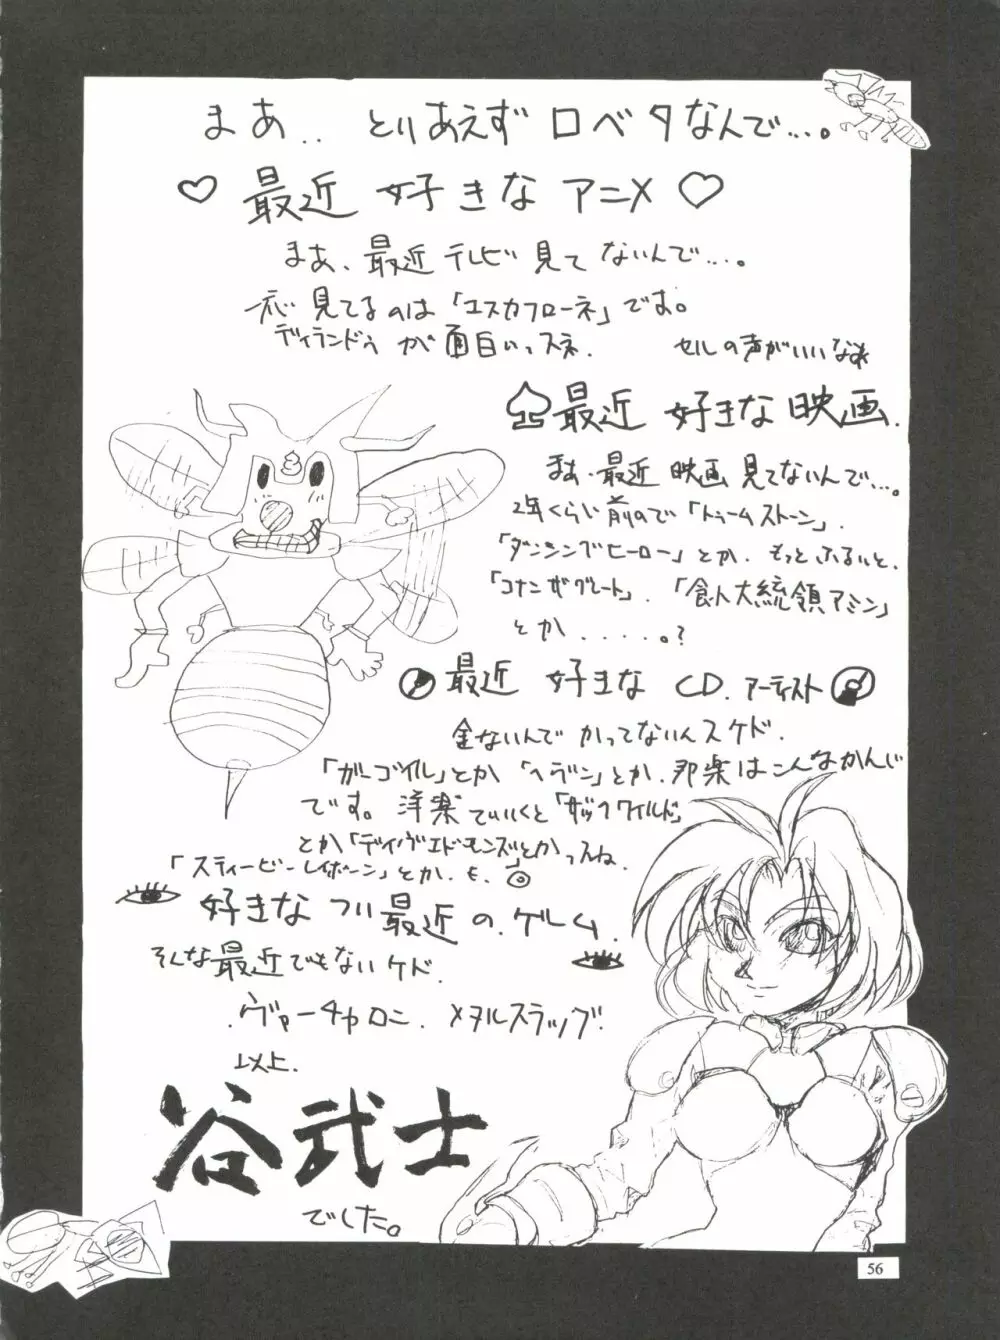 まあ.. とりあえずロベタなんで...。
♡ 最近 好きな アニメ ♡
まあ、最近 テレビ 見て ないんで...。
見てるのは「エスカフローネ」です。
ディランドゥ が 面白いっスネ.
セルの声がいいなあ
♤最近 好きな 映画.
まあ、最近 映画 見てないんで...。
2年くらい前ので「トゥームストーン」.
「ダンシングヒーロー」とか. もっとふるいと.
「コナン ザ グレート」.「食人大統領アミン」
とか.....。?
最近 好きな CD. アーティスト
金ないんで かってないんスケド.
「ガーゴイル」とか「ヘヴン」とか. 邦楽はこんなかんじ
です。洋楽でいくと「ザックワイルド」
とか「デイヴエドモンズ」とかっスね.
「スティービーレイボーン」とか.も.
好きな つい最近 の.ゲーム.
そんな最近でもないケド.
.ヴァーチャロン. メタルスラッグ!
以上.
谷武士
でした。
56